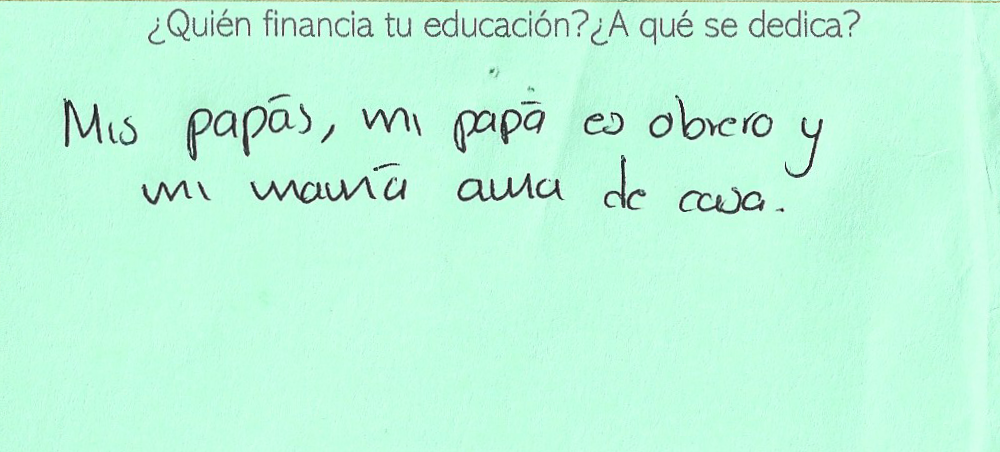 ¿Quién financia tu educación?¿A qué se dedica?
Mis papás, mi papá es obrero y
mi mamá ama de casa.